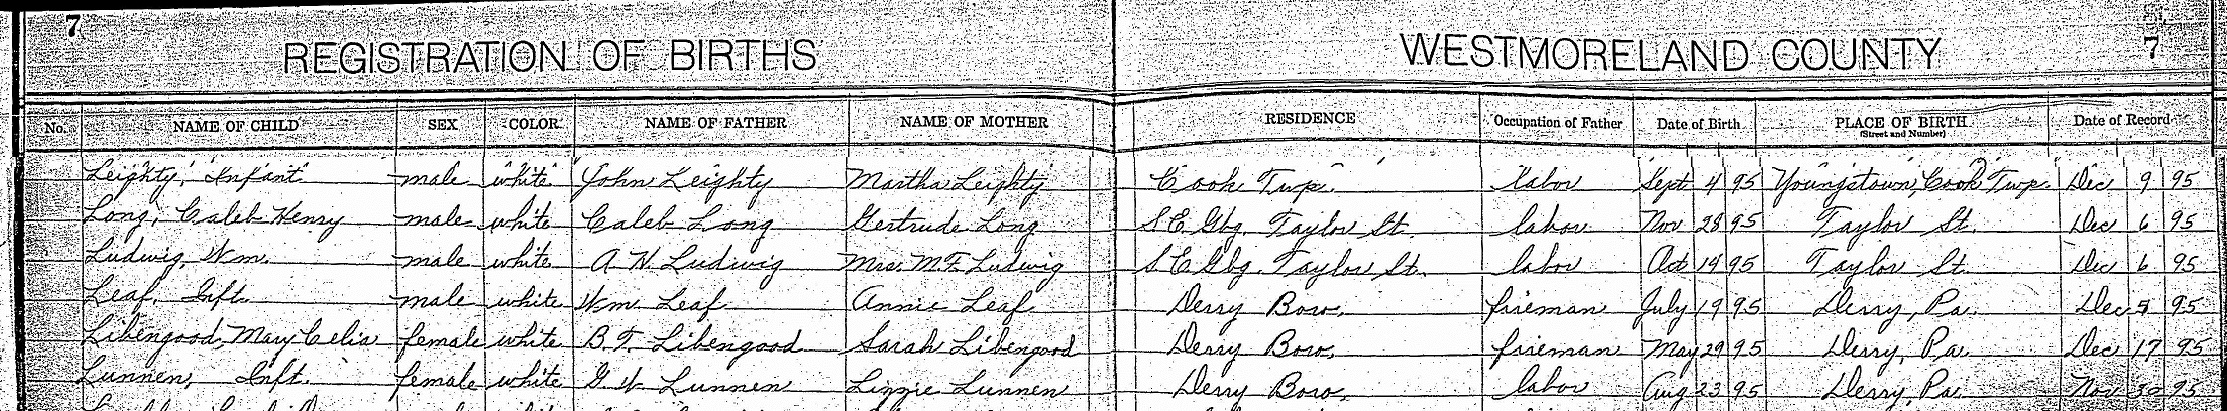 7
REGISTRATION OF BIRTHS WESTMORELAND COUNTY 7
No. NAME OF CHILD SEX COLOR NAME OF FATHER NAME OF MOTHER RESIDENCE Occupation of Father Date of Birth PLACE OF BIRTH (Street and Number) Date of Record
Leighty, Infant male white John Leighty Martha Leighty Cook Twp. labor Sept 4 95 Youngstown, Cook Twp. Dec 9 95
Long, Caleb Henry male white Caleb Long Gertrude Long S E Gbg. Taylor St. labor Nov 28 95 Taylor St. Dec 6 95
Ludwig, Wm. male white A. W. Ludwig Mrs. M. F. Ludwig S E Gbg. Taylor St. labor Oct 19 95 Taylor St. Dec 6 95
Leaf, Inft. male white Wm Leaf Annie Leaf Derry Boro. fireman July 19 95 Derry, Pa. Dec 95
Libengood, Mary Celia female white B. F. Libengood Sarah Libengood Derry Boro. fireman May 29 95 Derry, Pa. Dec 17 95
Lunnen, Inft. female white G W Lunnen Lizzie Lunnen Derry Boro. labor Aug 23 95 Derry, Pa. Nov 30 95